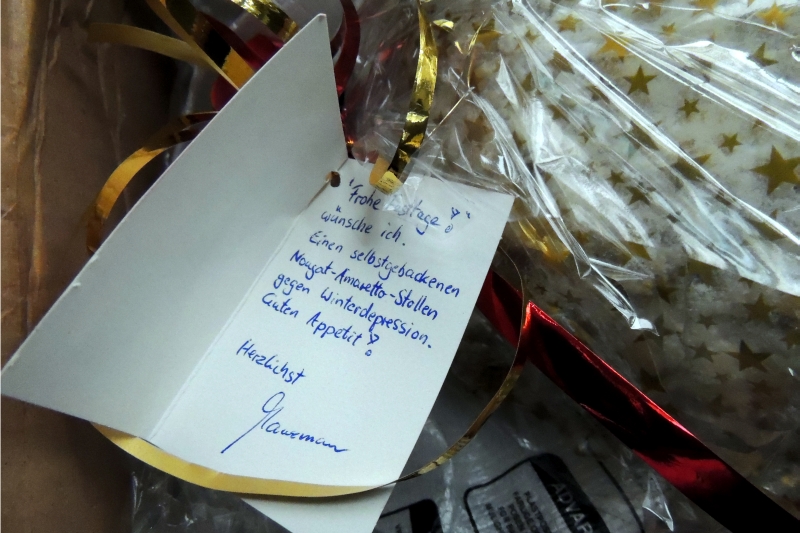 "Frohe Festtage!"
wünsche ich.
Einen selbstgebackenen
Nougat-Amaretto-Stollen
gegen Winterdepression.
Guten Appetit!
Herzlichst
ADVAP